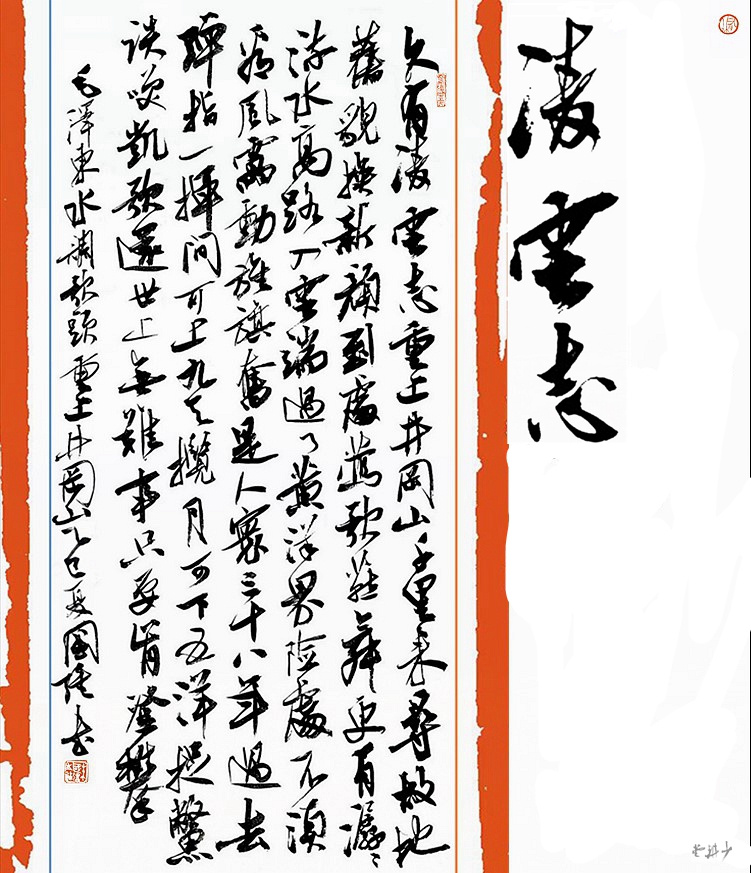 凌雲志
久有凌雲志重上井岡山千里來尋故地
舊貌換新顏到處鶯歌燕舞更有潺々
流水高路入雲端過了黃洋界险處不須
看風雷動旌旗奮是人寰三十八年過去
彈指一揮間可上九天攬月可下五洋捉鱉
談笑凱歌還世上無難事只要肯登攀
毛澤東水調歌頭重上井岡山乙巳夏國书